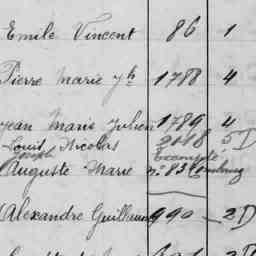 Emile Vincent 86 1
Pierre Marie Jh 1788 4
Jean Marie Julien 1789 4
Louis Nicolas 2048 5 D
Joseph exempté
Auguste Marie n° 83
Alexandre Guillaume 990 — 2 D